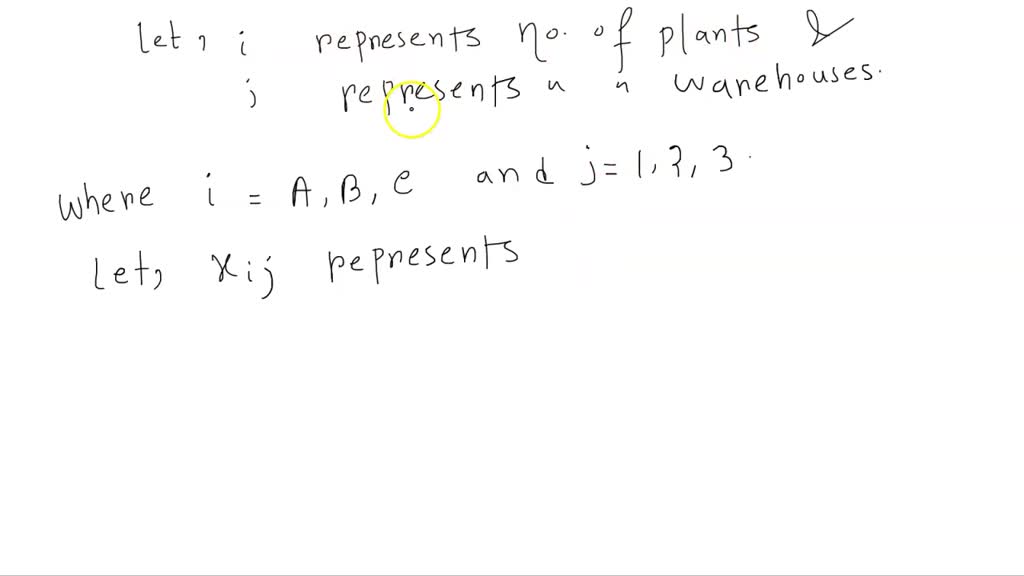 Let, i represents no. of plants &
j represents " " warehouses.
where i = A, B, C and j = 1, 2, 3.
Let, xij represents